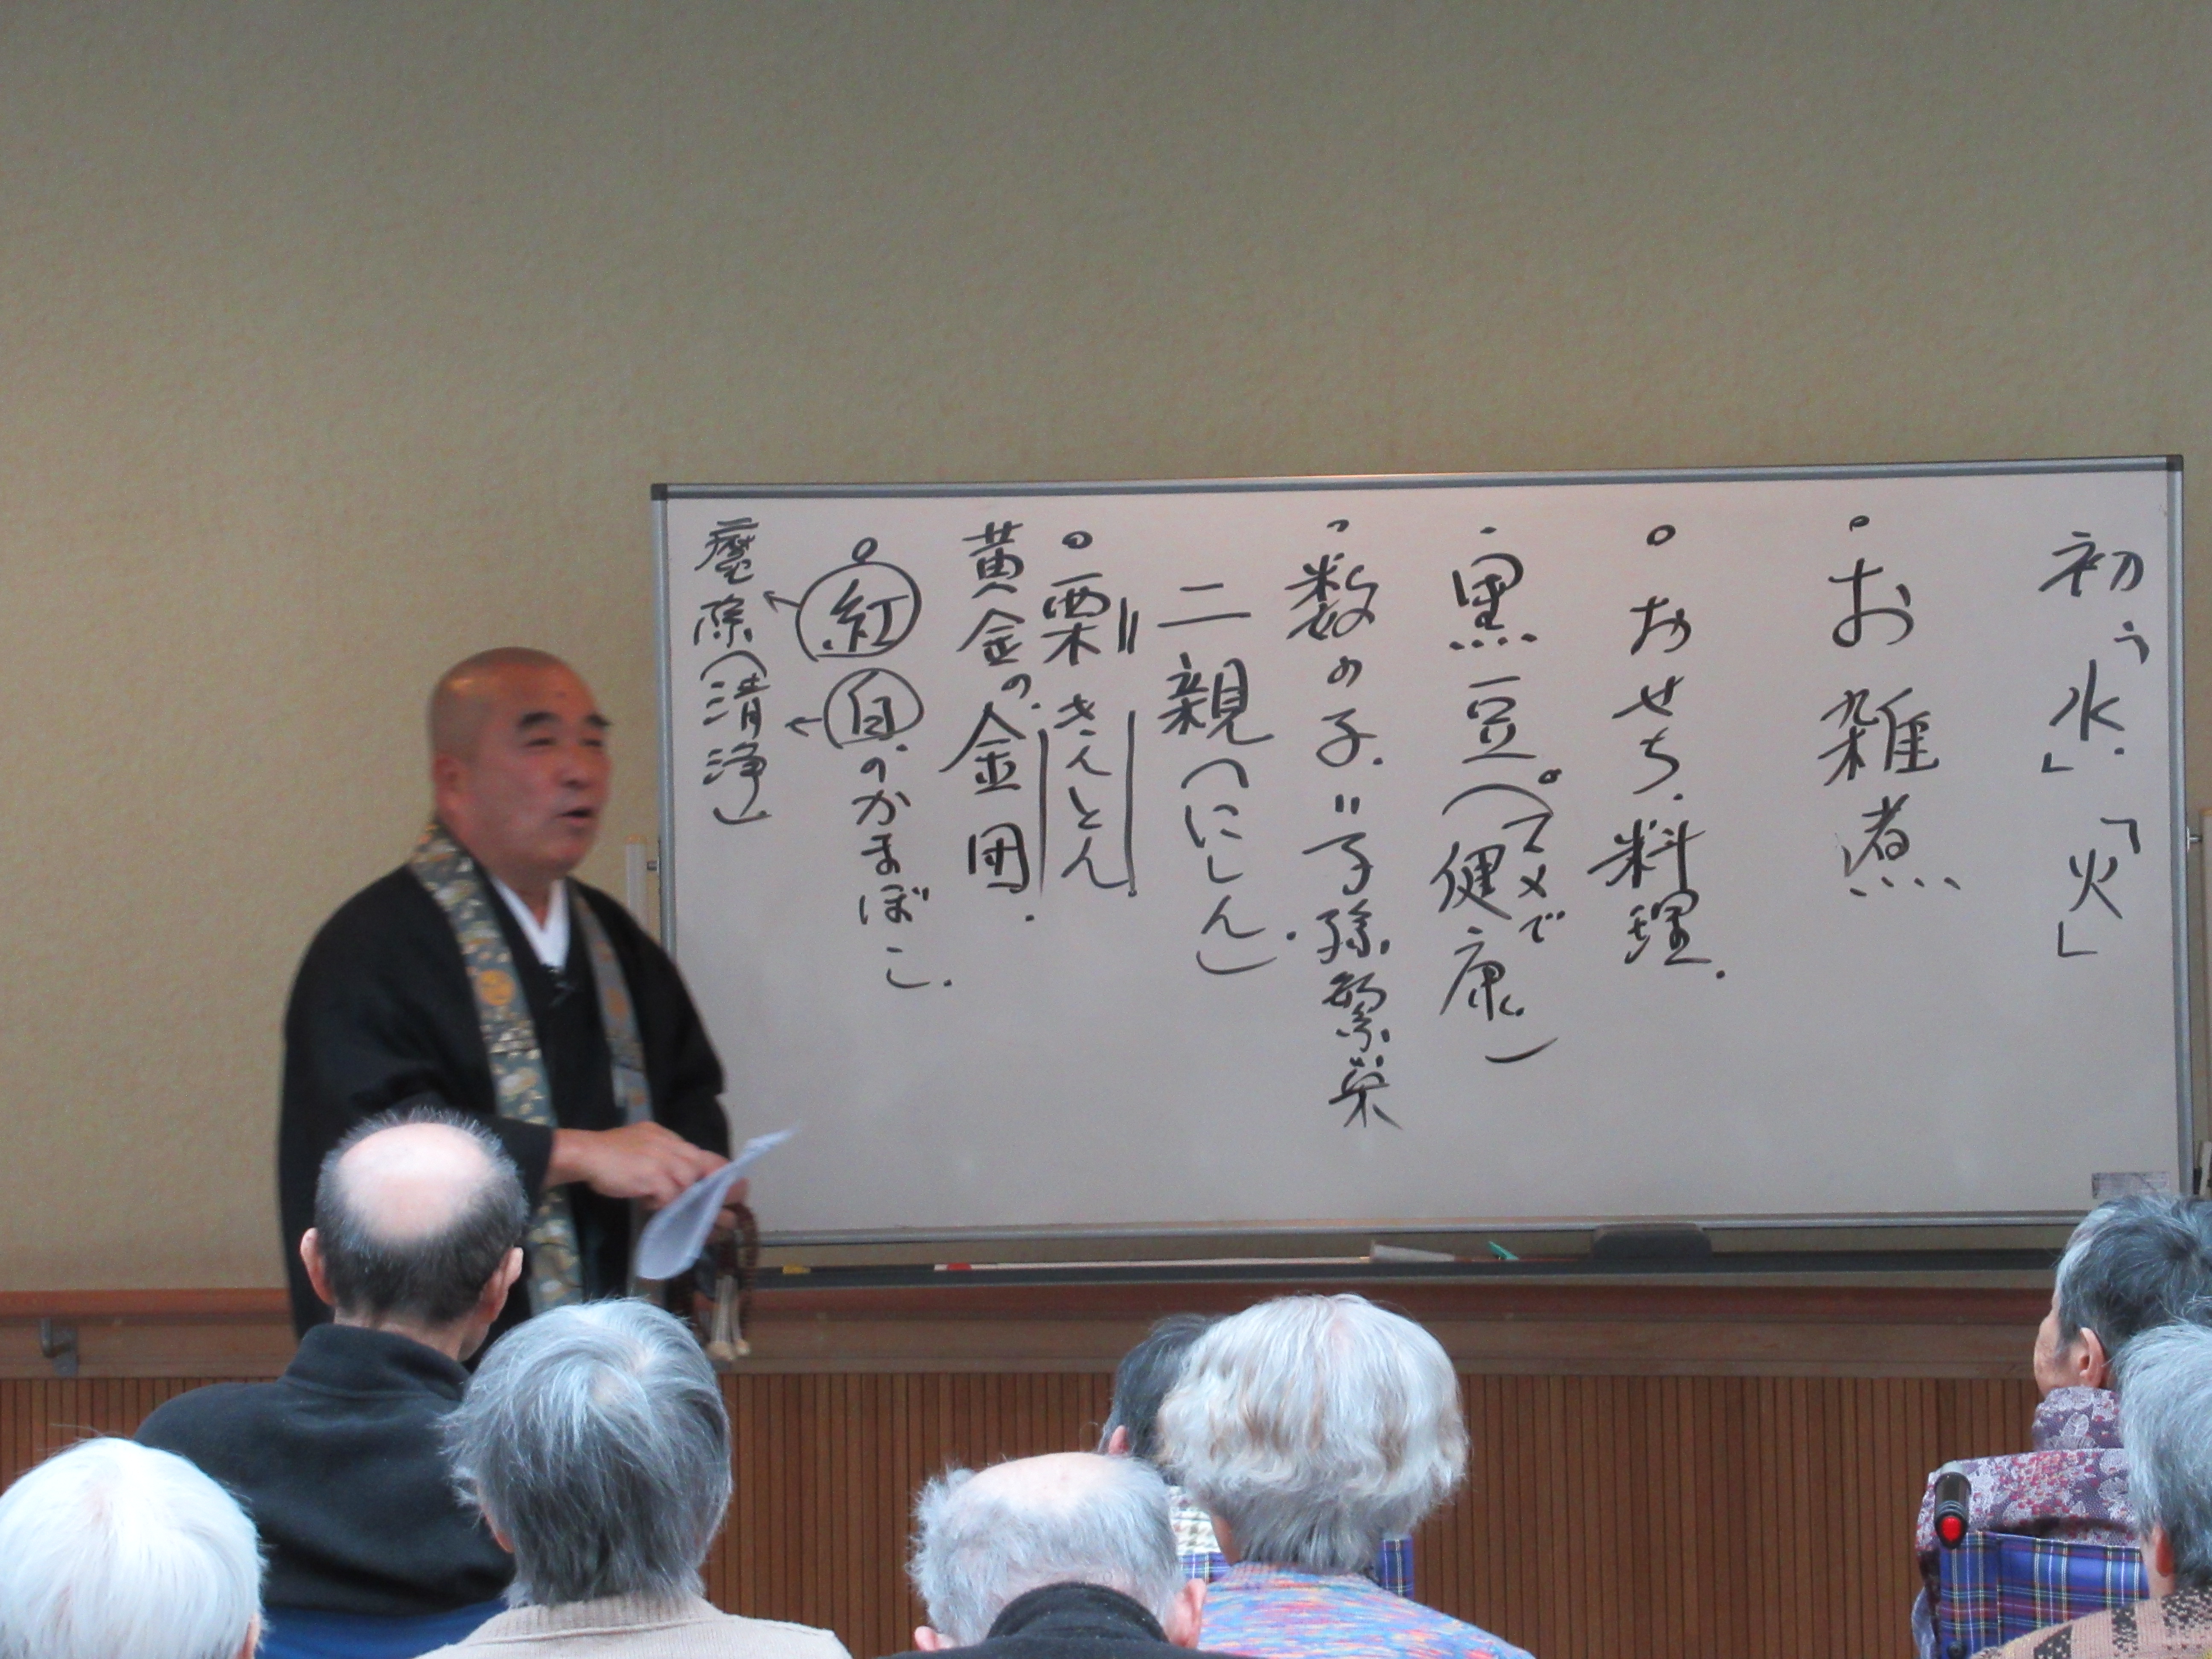 初「水」「火」
お雑煮
おせち料理
黒豆(マメで健康)
数の子=子孫繁栄
二親(にしん)
栗きんとん
黄金の金団
紅白のかまぼこ
魔除(清浄)